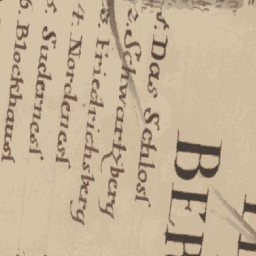 BER
1. Das Schlosſ
2. Schwartzberg
3. Friedrichsberg
4. Nordenesſ
5. Sudernesſ
6. Blockhausſ